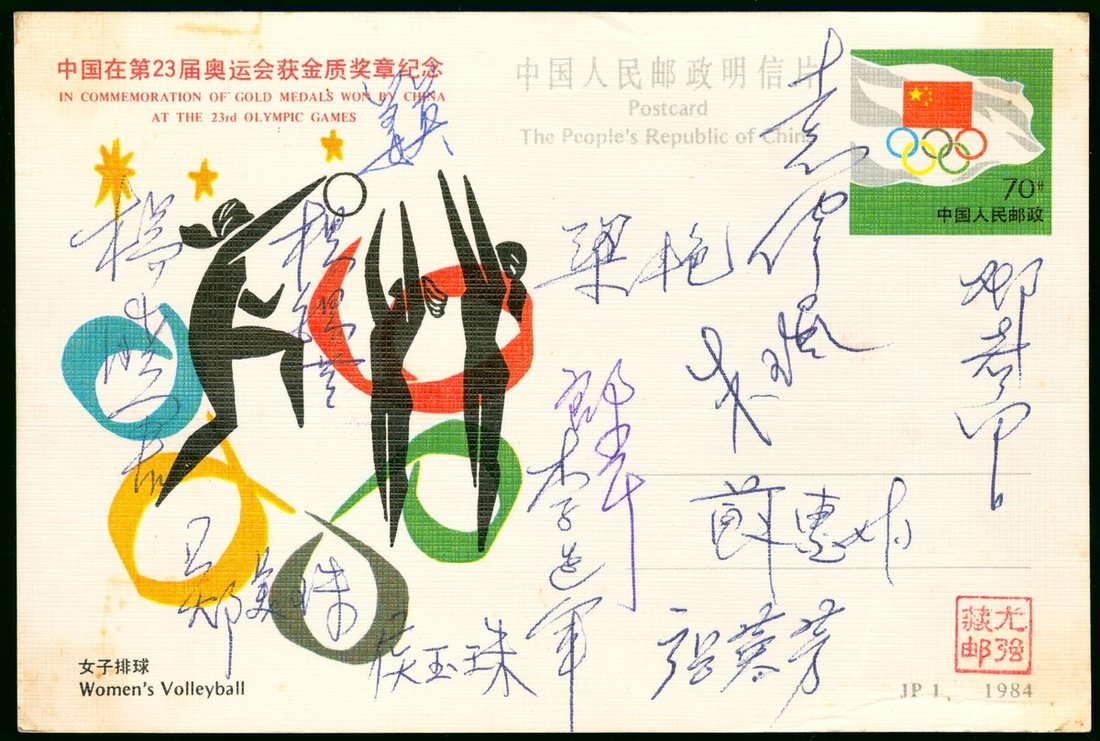 中国在第23届奥运会获金质奖章纪念
IN COMMEMORATION OF GOLD MEDALS WON BY CHINA
AT THE 23rd OLYMPIC GAMES
中国人民邮政明信片
Postcard
The People's Republic of China
70分
中国人民邮政
梁艳
杨锡兰
郑美珠
侯玉珠
李延军
苏惠娟
张蓉芳
邓若曾
女子排球
Women's Volleyball
尤强
藏邮
JP 1 1984